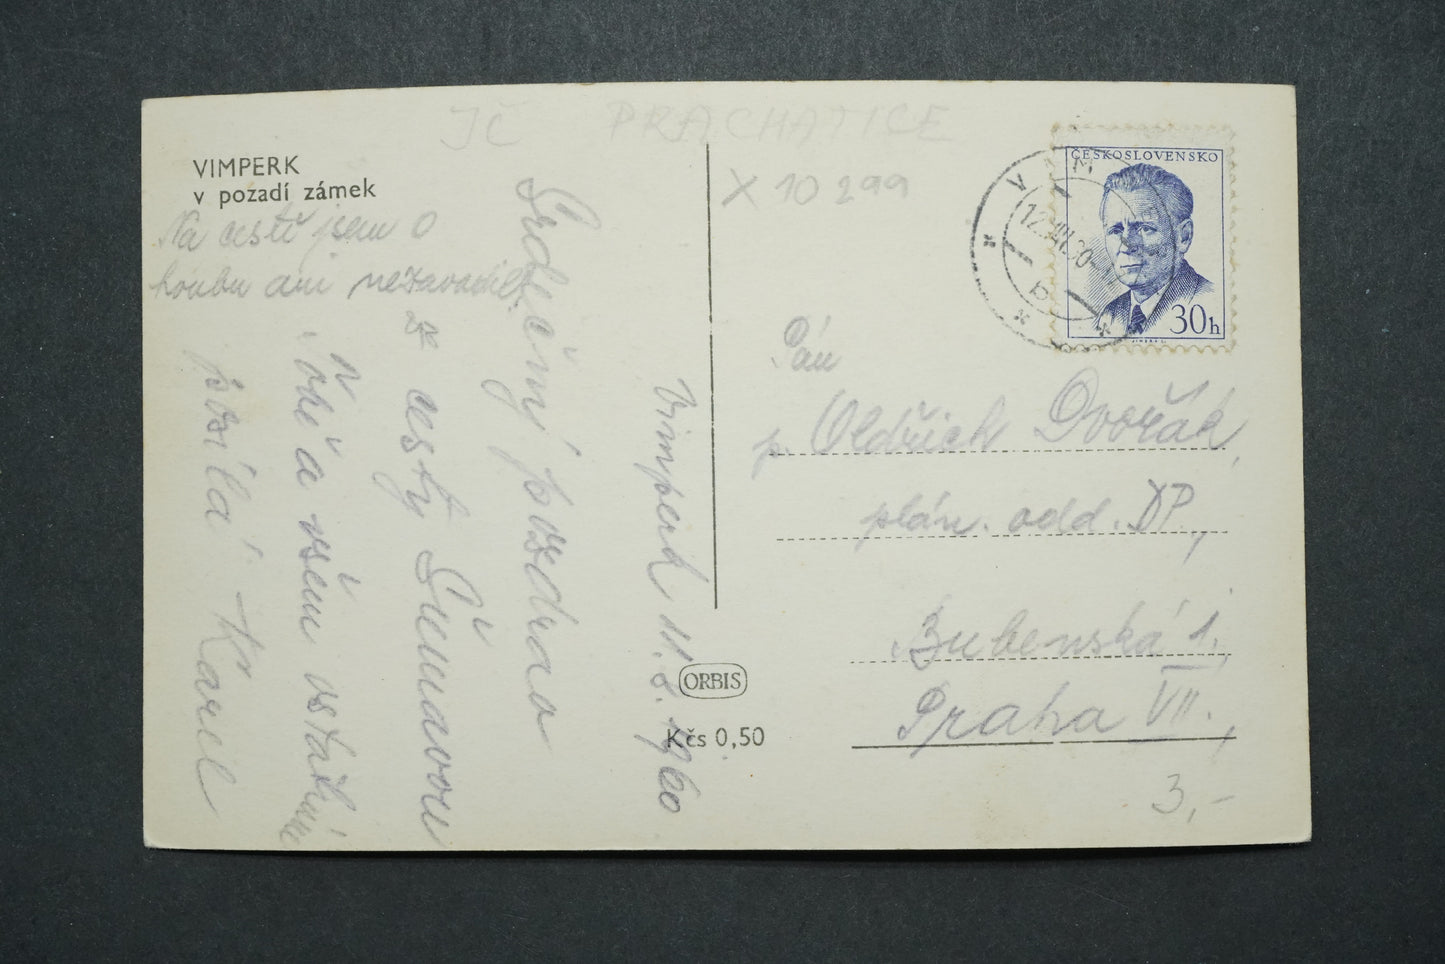 JČ PRACHATICE
X 10 299
VIMPERK
v pozadí zámek
Na cestě jsem o
houbu ani nezavadil
Vimperk 11.8.1960
Srdečný pozdrav
z cesty Šumavou
Tobě a všem ostatním
posílá Karel
ORBIS
Kčs 0,50
ČESKOSLOVENSKO
30h
VIM
Pán
p. Oldřich Dvořák,
plán. odd. DP,
Bubenská 1.,
Praha VII.,
3,-